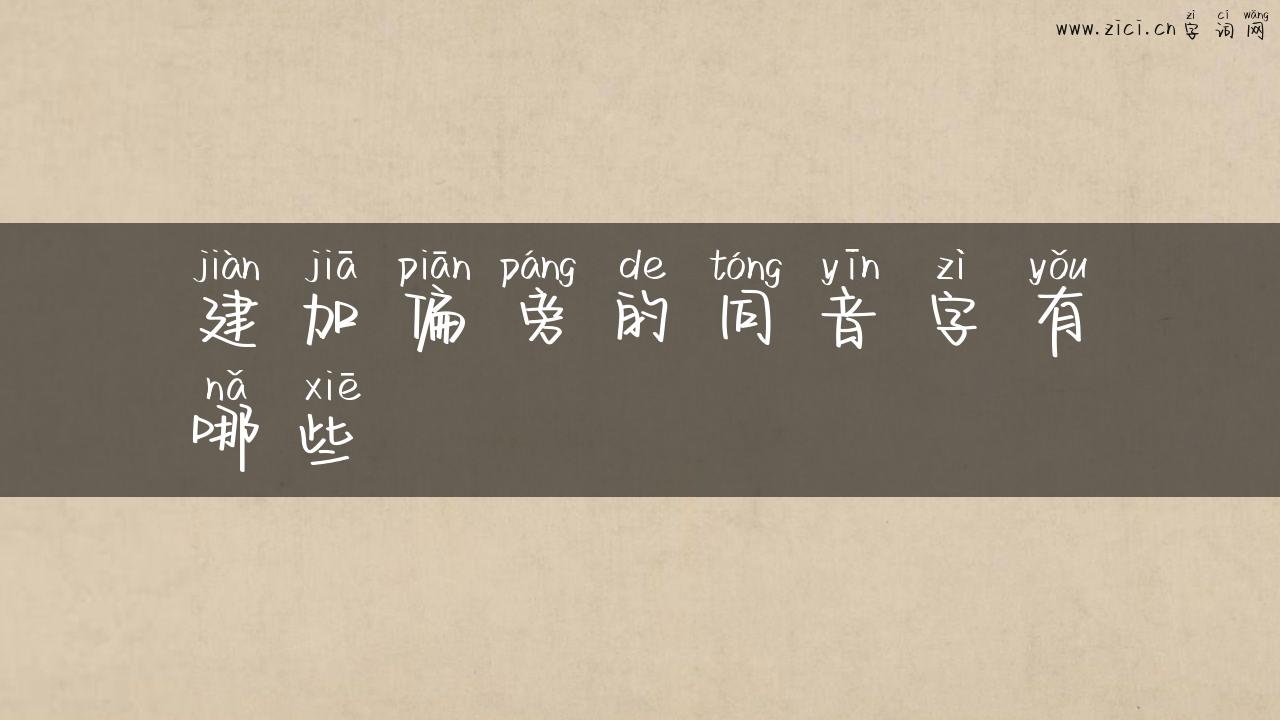 zì cí wǎng
www.zici.cn 字词网
jiàn jiā piān páng de tóng yīn zì yǒu
建加偏旁的同音字有
nǎ xiē
哪些